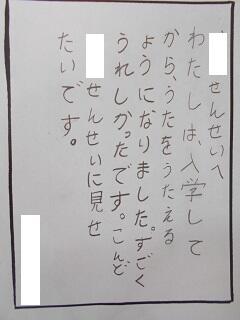 せんせいへ
わたしは、入学して
から、うたをうたえる
ようになりました。すごく
うれしかったです。こんど
せんせいに見せ
たいです。